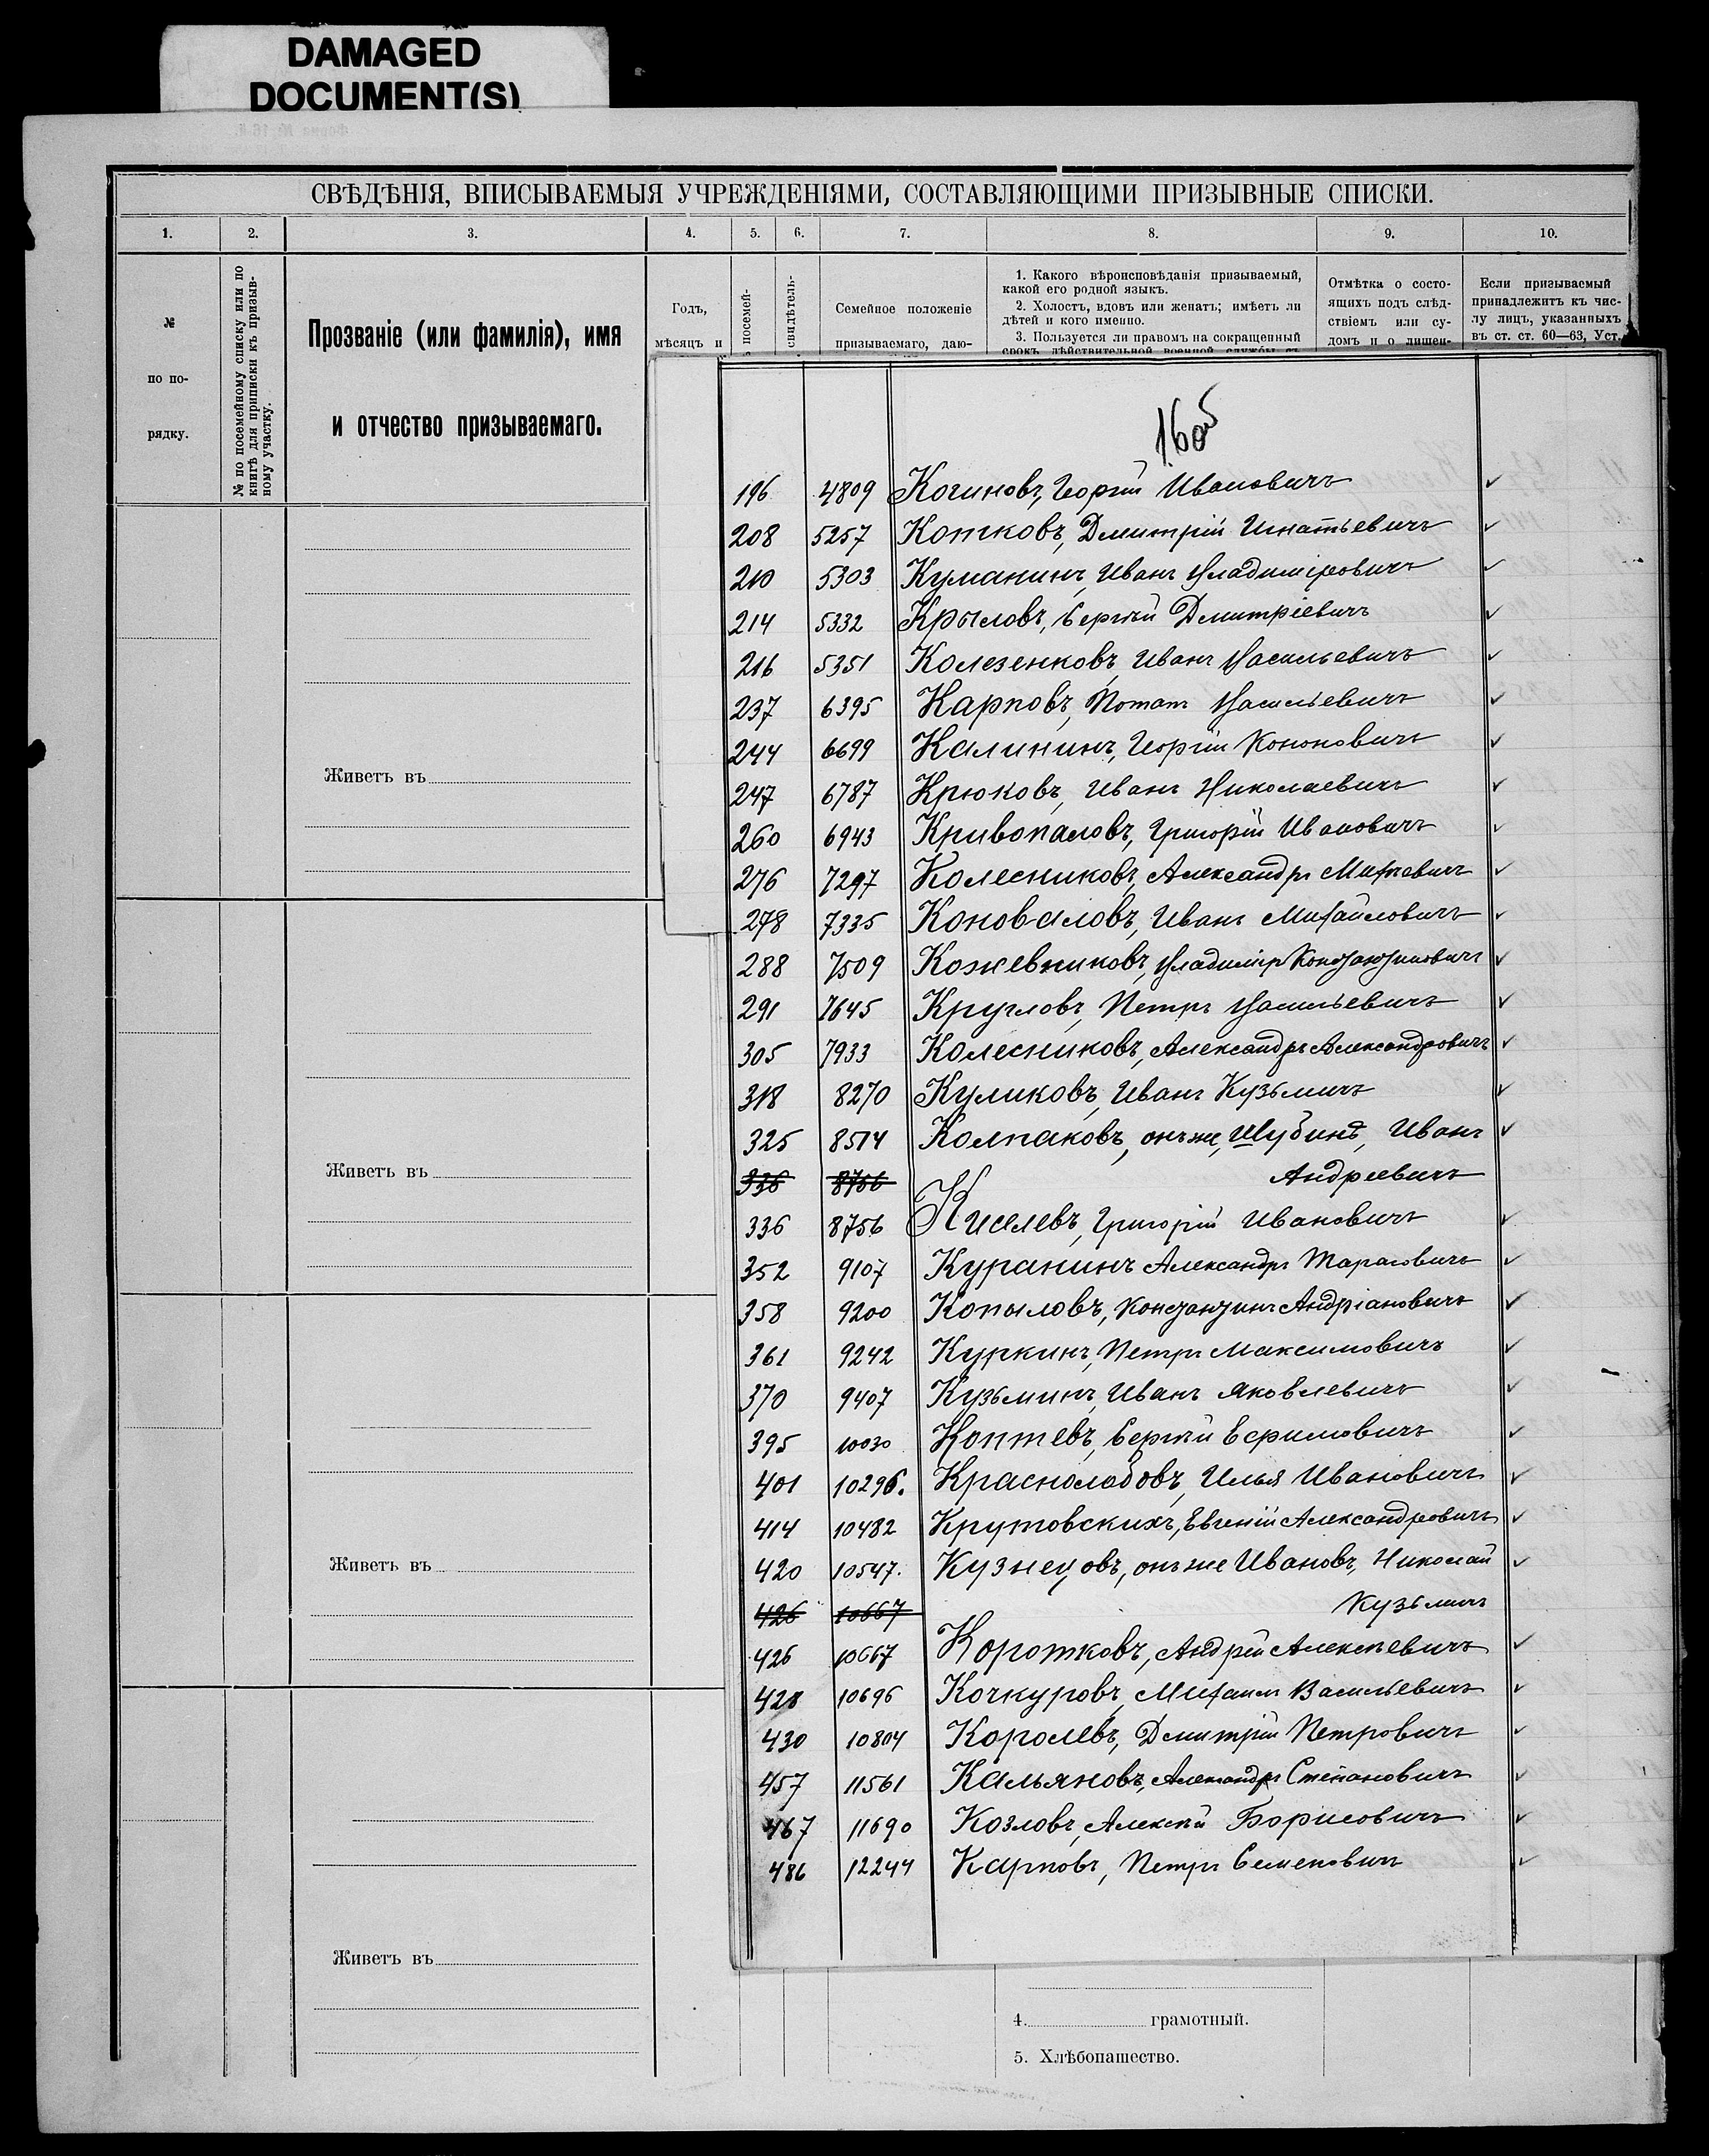 DAMAGED
DOCUMENT(S)
СВѢДѢНІЯ, ВПИСЫВАЕМЫЯ УЧРЕЖДЕНІЯМИ, СОСТАВЛЯЮЩИМИ ПРИЗЫВНЫЕ СПИСКИ.
1. 2. 3. 4. 5. 6. 7. 8. 9. 10.
№
по по-
рядку.
№ по посемейному списку или по
книгѣ для приписки къ призыв-
ному участку.
Прозваніе (или фамилія), имя
и отчество призываемаго.
Годъ,
мѣсяцъ и
посемей-
свидѣтель-
Семейное положеніе
призываемаго, даю-
1. Какого вѣроисповѣданія призываемый,
какой его родной языкъ.
2. Холостъ, вдовъ или женатъ; имѣетъ ли
дѣтей и кого именно.
3. Пользуется ли правомъ на сокращенный
срокъ дѣйствительной военной службы съ
Отмѣтка о состо-
ящихъ подъ слѣд-
ствіемъ или су-
домъ и о лишен-
Если призываемый
принадлежитъ къ чис-
лу лицъ, указанныхъ
въ ст. ст. 60—63, Уст.
16об
196 4809 Когиновъ, Георгій Ивановичъ ✓
208 5257 Котковъ, Дмитрій Игнатьевичъ ✓
210 5303 Куманинъ, Иванъ Владиміровичъ ✓
214 5332 Крыловъ, Сергѣй Дмитріевичъ ✓
216 5351 Колезенковъ, Иванъ Васильевичъ ✓
237 6395 Карповъ, Потапъ Васильевичъ ✓
244 6699 Калининъ, Георгій Кононовичъ ✓
247 6787 Крюковъ, Иванъ Николаевичъ ✓
260 6943 Кривопаловъ, Григорій Ивановичъ ✓
276 7297 Колесниковъ, Александръ Михѣевичъ ✓
278 7335 Коноваловъ, Иванъ Михайловичъ ✓
288 7509 Кожевниковъ, Владиміръ Константиновичъ ✓
291 7645 Кругловъ, Петръ Васильевичъ ✓
305 7933 Колесниковъ, Александръ Александровичъ ✓
318 8270 Куликовъ, Иванъ Кузьмичъ ✓
325 8514 Колпаковъ, онъ же, Шубинъ, Иванъ ✓
336 8756 Андреевичъ
336 8756 Киселевъ, Григорій Ивановичъ ✓
352 9107 Куранинъ Александръ Тарасовичъ ✓
358 9200 Копыловъ, Константинъ Андріановичъ ✓
361 9242 Куркинъ, Петръ Максимовичъ ✓
370 9407 Кузьминъ, Иванъ Яковлевичъ ✓
395 10030 Коптевъ, Сергѣй Ефимовичъ ✓
401 10296. Краснолобовъ, Илья Ивановичъ ✓
414 10482 Крутовскихъ, Евгеній Александровичъ ✓
420 10547. Кузнецовъ, онъ же Ивановъ, Николай ✓
426 10667 Кузьмичъ
426 10667 Коротковъ, Андрей Алексѣевичъ ✓
428 10696 Кочкуровъ, Михаилъ Васильевичъ ✓
430 10804 Королевъ, Дмитрій Петровичъ ✓
457 11561 Кальяновъ, Александръ Степановичъ ✓
467 11690 Козловъ, Алексѣй Борисовичъ ✓
486 12244 Карповъ, Петръ Семеновичъ ✓
Живетъ въ
Живетъ въ
Живетъ въ
Живетъ въ
4. грамотный.
5. Хлѣбопашество.